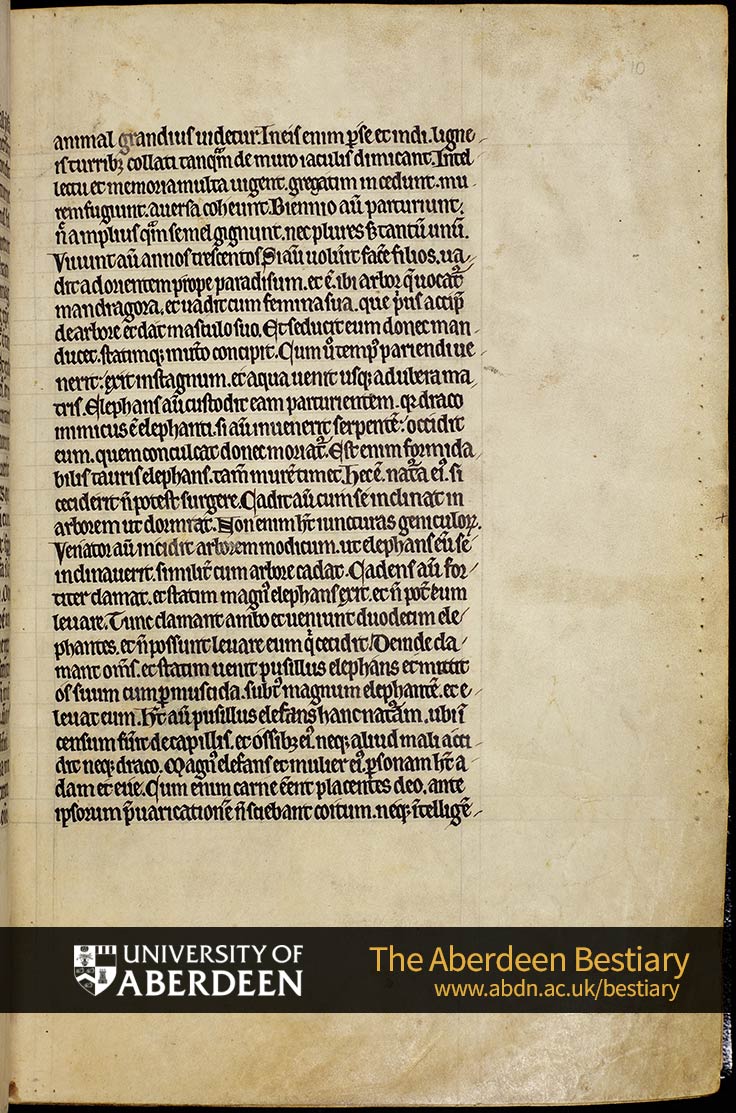 10
animal grandius uidetur. In eis enim ꝑse et indi. ligne
is turribꝫ collati tanqͣm de muro iaculis dimicant. Intel
lectu et memoria multa uigent. gregatim incedunt. mu
rem fugiunt. auersa coheunt. Biennio aū parturiunt.
n̄ amplius qͣm semel gignunt. nec plures sꝫ tantū unū.
Viuunt aū annos trescentos Si aū uolūit facẽ filios. ua
dit ad orientem prope paradisum. et ē ibi arbor q̄ uocat᷑
mandragora. et uadit cum femina sua. que p̄us accip̄
de arbore et dat masculo suo. Et seducit eum donec man
ducet. statimqꝫ in utͦo concipit. Cum ū temp᷒ pariendi ue
nerit: exit in stagnum. et aqua uenit usqꝫ ad ubera ma
tris. Elephans aū custodit eam parturientem. qꝛ draco
inimicus ē elephanti. si aū inuenerit serpentē: occidit
eum. quem conculcat donec moriat᷑. Est enim formida
bilis tauris elephans. tam̄ murē timet. Hec ē. nat͛a ei᷒. si
ceciderit n̄ potest surgere. Cadit aū cum se inclinat in
arborem ut dormiat. Non enim h̄t iuncturas geniculoꝝ.
Venator aū incidit arborem modicum. ut elephans cū se
inclinauerit. similit̄ cum arbore cadat. Cadens aū for
titer clamat. et statim magn᷒ elephans exit. et n̄ potē eum
leuare. Tunc clamant ambo et ueniunt duodecim ele
phantes. et n̄ possunt leuare eum q̇ cecidit. Deinde cla
mant om̄s. et statim uenit pusillus elephans et mittit
os suum cum ꝓmuscida. subt᷒ magnum elephantē. et e
leuat eum. H̄t aū pusillus elefans hanc nat͛am. ubi ī
censum fūit de capillis. et ossibꝫ ei᷒. neqꝫ aliud mali acci
dit neqꝫ draco. Magn᷒ elefans et mulier ei᷒. ꝑsonam h̄t a
dam et eue. Cum enim carne eēnt placentes deo. ante
ipsorum p̄uaricationē n̄ sciebant coitum. neqꝫ ītelligē
UNIVERSITY OF
ABERDEEN
The Aberdeen Bestiary
www.abdn.ac.uk/bestiary